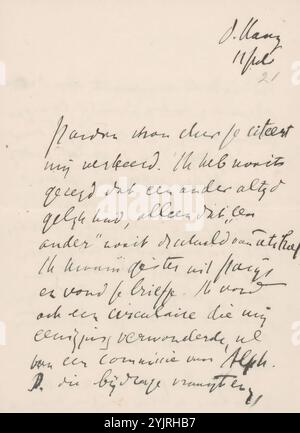 d. Haag
11 feb
21
Pardon mon cher je citeert
mij verkeerd. Ik heb nooit
gezegd dat een ander altijd
gelijk had, alleen dat "een
ander" nooit de schuld van iets had
Ik kwam gister uit Parijs
en vond je briefje. Ik vond
ook een circulaire die mij
eenigzins verwonderde, nl
van een commissie voor Alph.
D. die bijdrage vraagt en
alamy
Image ID: 2YJRHB7
www.alamy.com